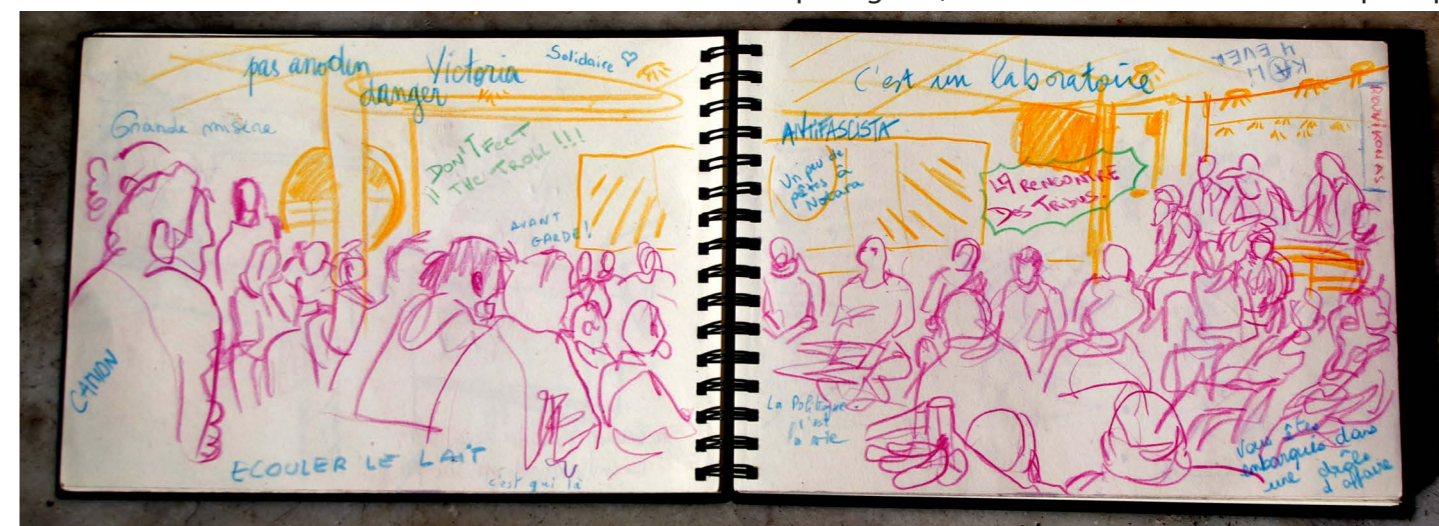 pas anodin
Victoria
danger
Solidaire
Grande misère
DON'T FEET
THE TROLL !!!
AVANT
GARDE !
CANON
ECOULER LE LAIT
c'est qui là
C'est un laboratoire
KALI
4 EVER
ANTIFASCISTA
Un peu de
pêtes à
Notara
LA RENCONTRE
DES TRIBUS
La Politique
c'est
la vie
Vous êtes
embarqués dans
une drôle
d'affaire